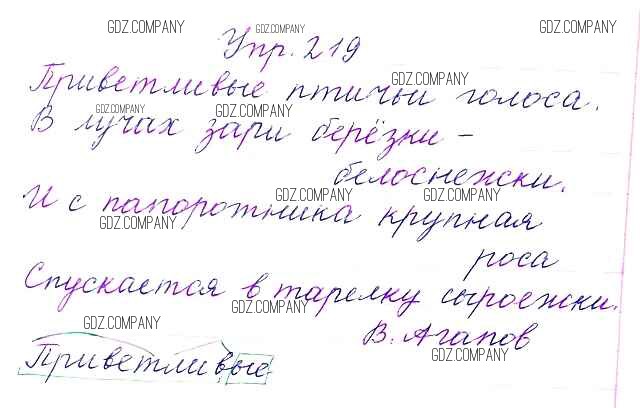 GDZ.COMPANY GDZ.COMPANY GDZ.COMPANY
Упр. 219
GDZ.COMPANY
Приветливые птичьи голоса.
GDZ.COMPANY GDZ.COMPANY
В лучах зари берёзки –
белоснежки.
GDZ.COMPANY GDZ.COMPANY
И с папоротника крупная
GDZ.COMPANY GDZ.COMPANY
роса
Спускается в тарелку сыроежки.
GDZ.COMPANY
GDZ.COMPANY
В. Агапов
GDZ.COMPANY
Приветливые